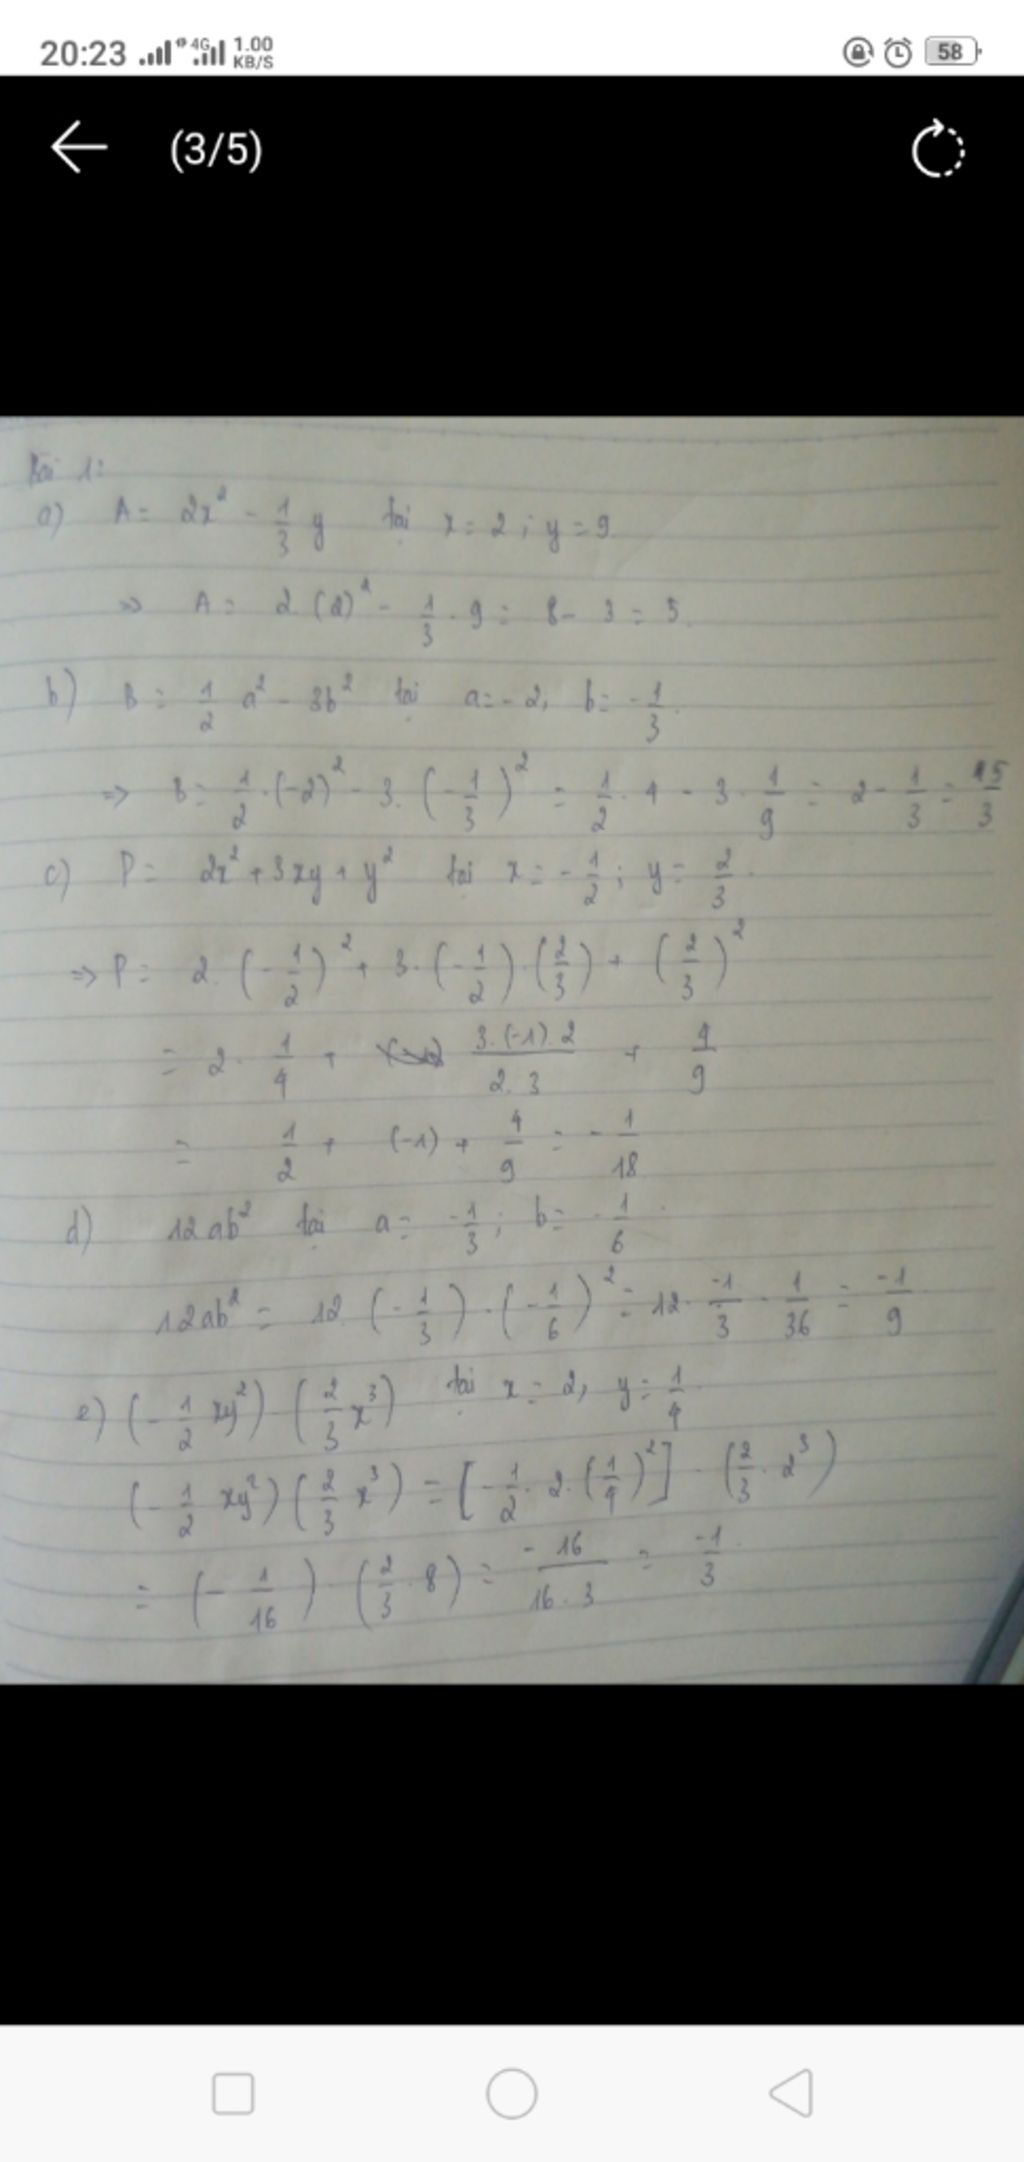 20:23 4G 1.00 KB/S 58
(3/5)
Bài 1:
a) A = 2x² - 1/3 y tại x = 2 ; y = 9.
=> A = 2.(2)² - 1/3 . 9 = 8 - 3 = 5.
b) B = 1/2 a² - 3b² tại a = -2, b = -1/3.
=> B = 1/2 . (-2)² - 3. (-1/3)² = 1/2 . 4 - 3 . 1/9 = 2 - 1/3 = 5/3
c) P = 2x² + 3xy + y² tại x = -1/2 ; y = 2/3.
=> P = 2. (-1/2)² + 3. (-1/2) . (2/3) + (2/3)²
= 2 . 1/4 + 3.(-1).2/2.3 + 4/9
= 1/2 + (-1) + 4/9 = -1/18
d) 12ab² tại a = -1/3 ; b = -1/6.
12ab² = 12. (-1/3) . (-1/6)² = 12. -1/3 . 1/36 = -1/9
e) (-1/2 xy²) . (2/3 x³) tại x = 2, y = 1/4.
(-1/2 xy²) (2/3 x³) = [-1/2 . 2. (1/4)²] . (2/3 . 2³)
= (-1/16) . (2/3 . 8) = -16/16.3 = -1/3.